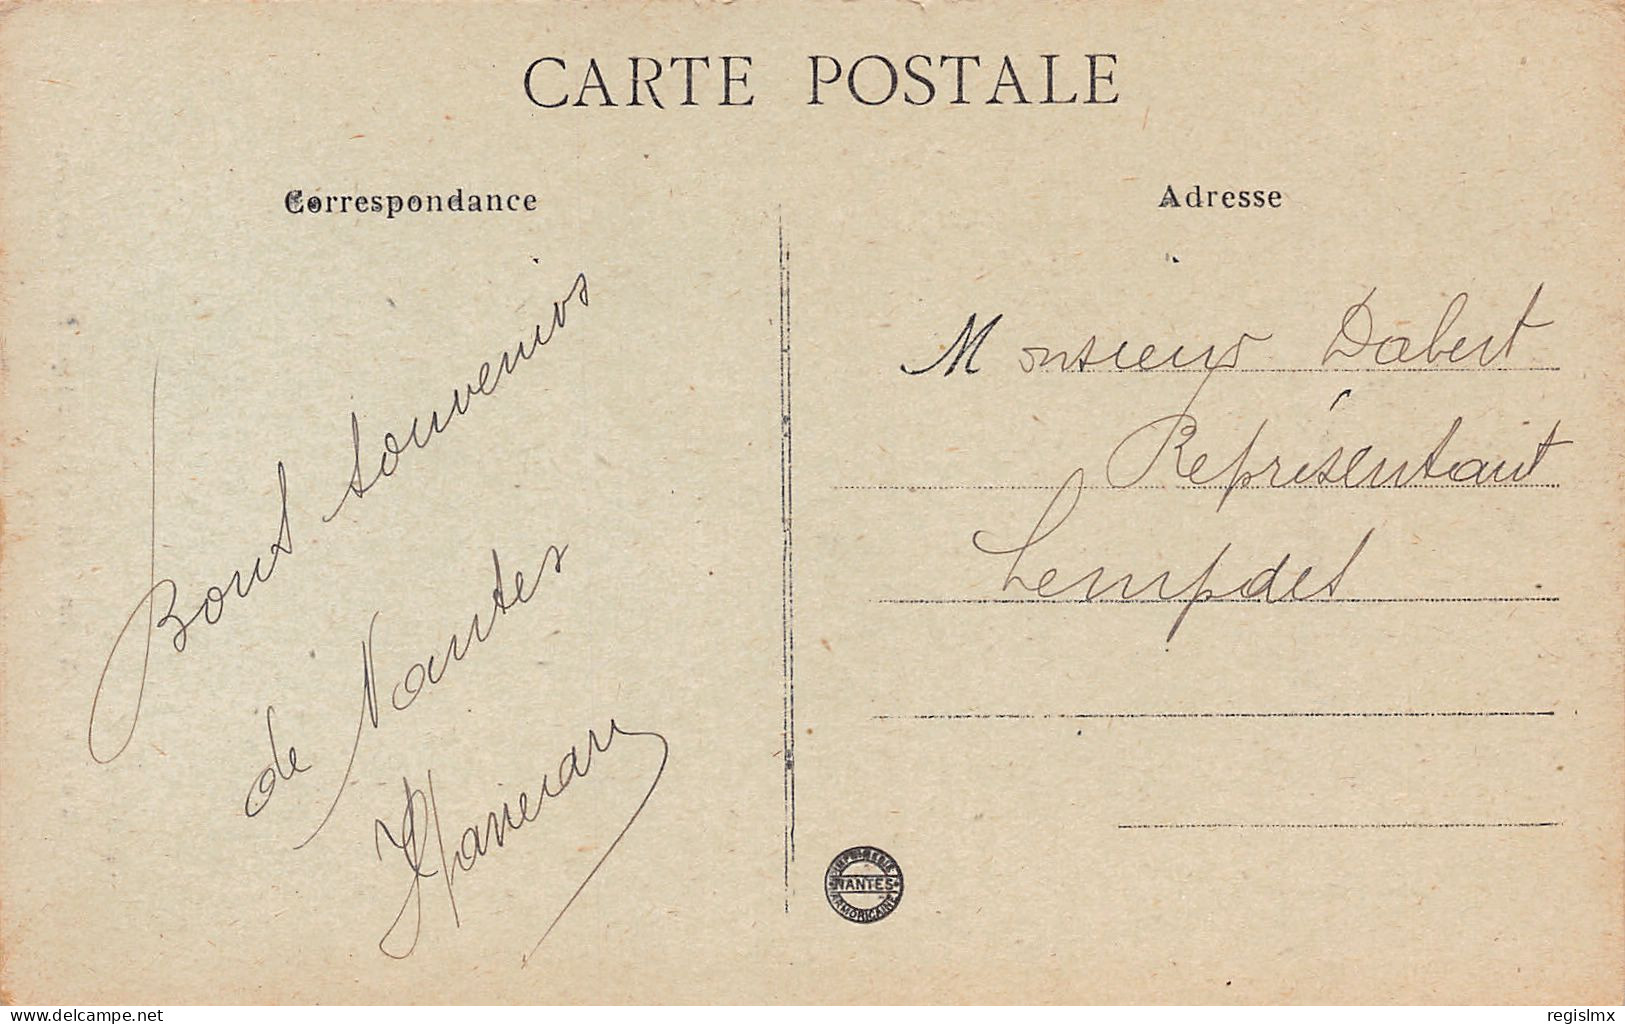 CARTE POSTALE
Correspondance
Bons souvenirs
de Nantes
Adresse
Monsieur Dabert
Représentant
Lempdes
IMPRIMERIE
NANTES
ARMORICAINE
www.delcampe.net
regislmx